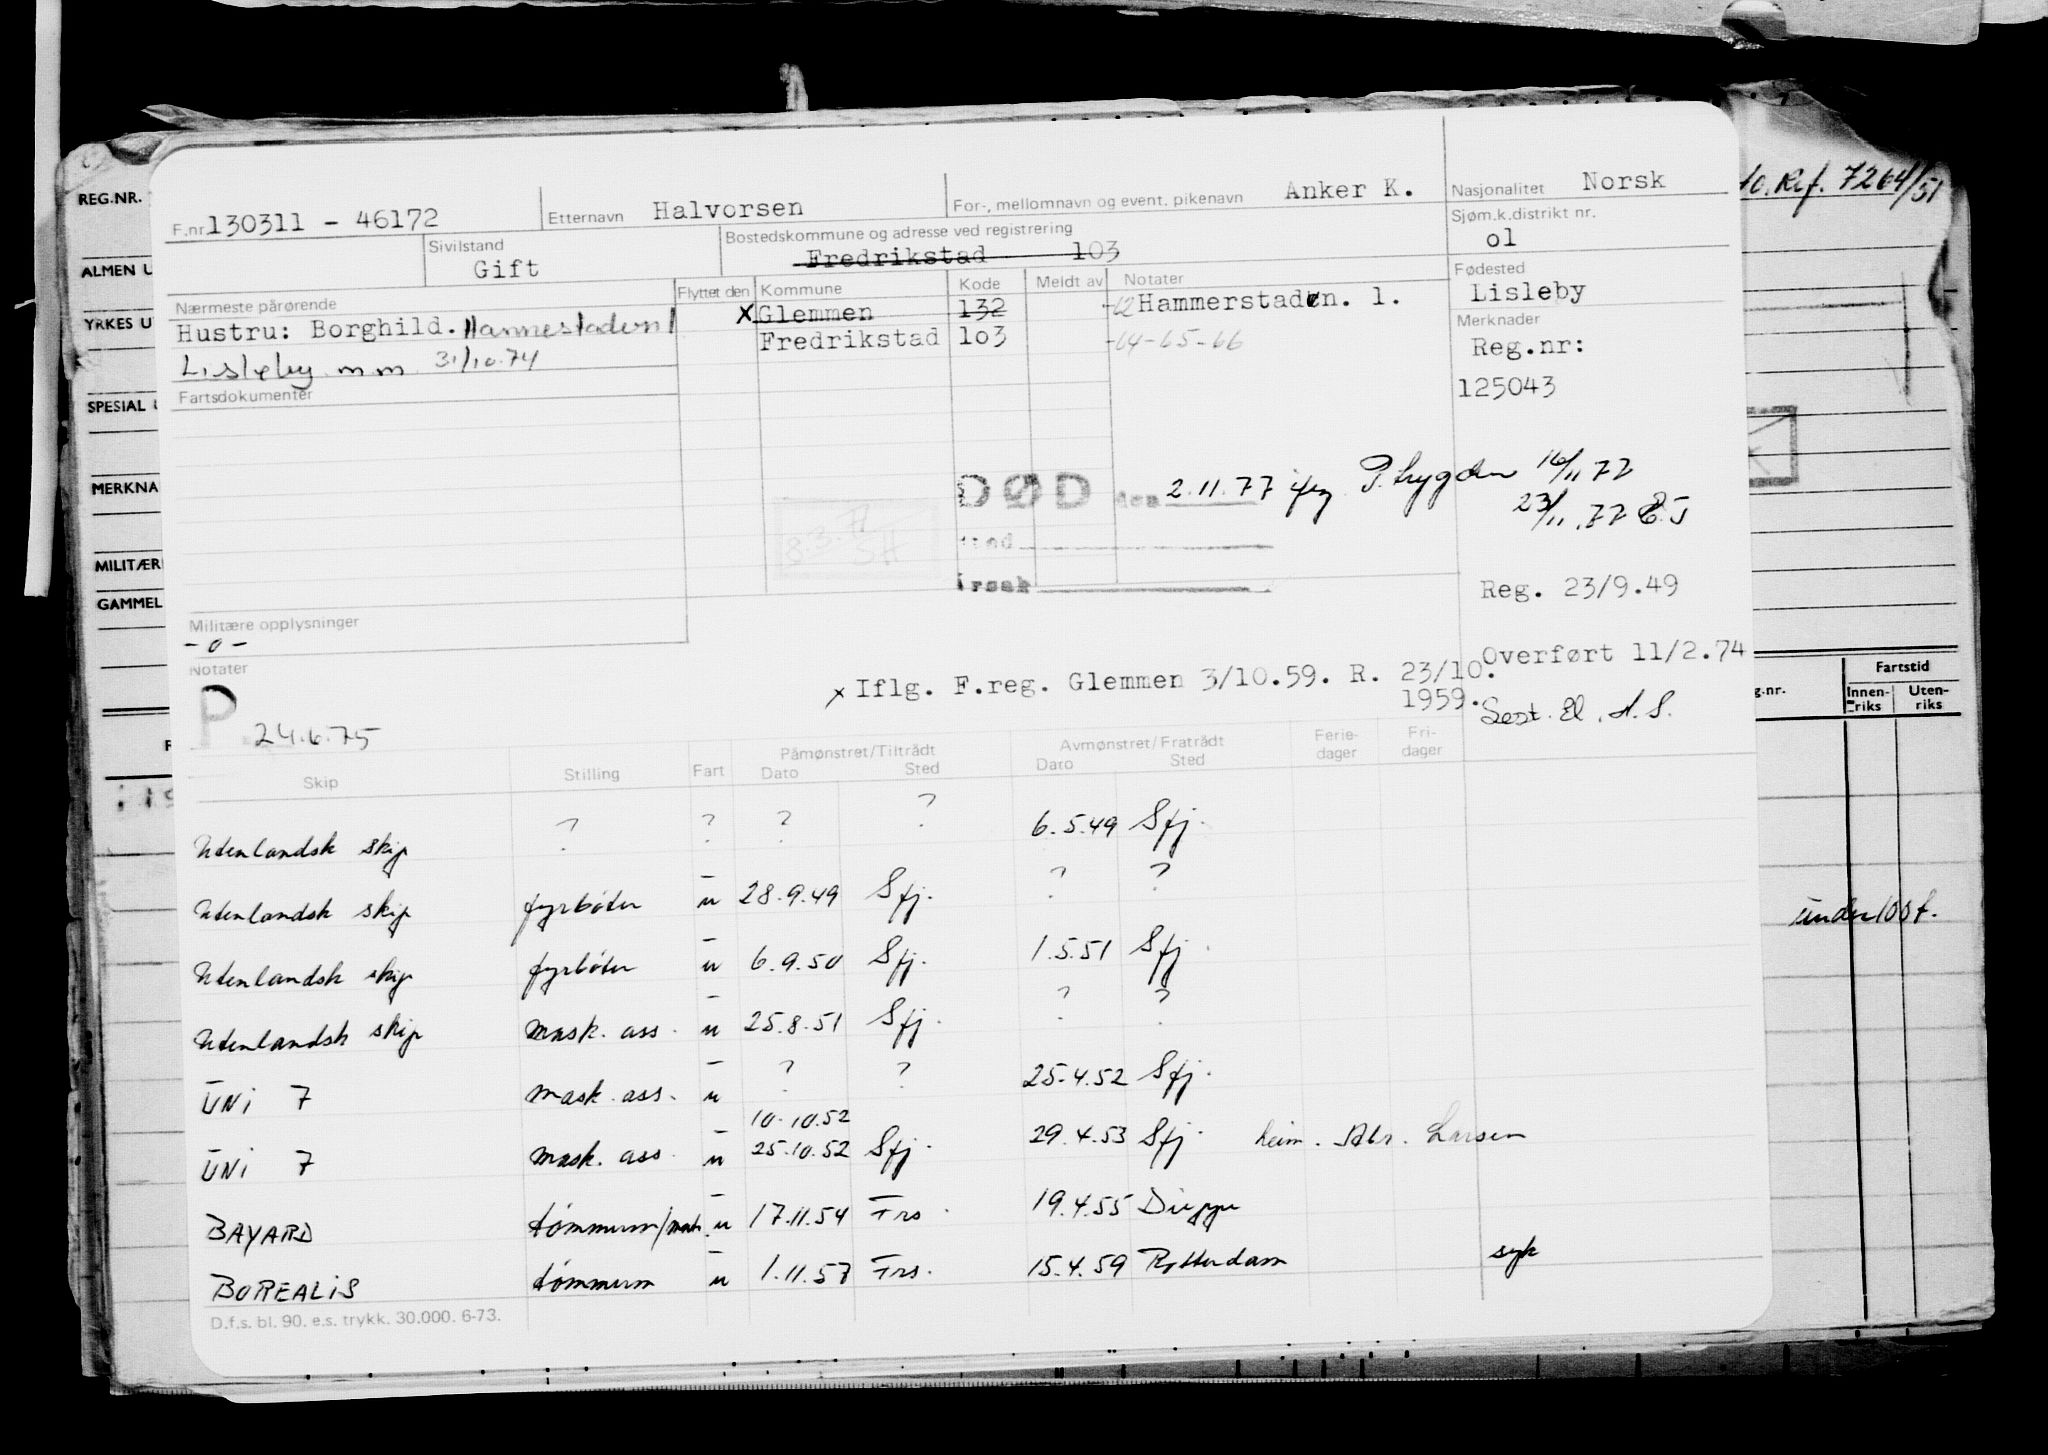 REG.NR.
to. Ref. 7264/51
ALMEN U
YRKES U
SPESIAL
MERKNA
MILITÆR
GAMMEL
F.nr. 130311 - 46172
Etternavn Halvorsen
For-, mellomnavn og event, pikenavn Anker K.
Nasjonalitet Norsk
Sjøm.k.distrikt nr.
01
Sivilstand
Gift
Bostedskommune og adresse ved registrering
Fredrikstad 103
Fødested
Lisleby
Nærmeste pårørende
Hustru: Borghild. Hannestadern 1
Lisleby m m 31/10.74
Flyttet den Kommune Kode Meldt av Notater
x Glemmen 132 -62 Hammerstaden. 1.
Fredrikstad 103 -64-65-66
Merknader
Reg.nr:
125043
Fartsdokumenter
DØD den 2.11.77 ifg P.trygden 16/11 77
23/11.77 E.J
8.3.77
SH
sted
årsak
Reg. 23/9.49
Militære opplysninger
- o -
Overført 11/2.74
Notater
P 24.6.75
x Iflg. F.reg. Glemmen 3/10.59. R. 23/10.
1959.
Sest. El. A. S.
g.nr.
Fartstid
Innen-
riks
Uten-
riks
Påmønstret/Tiltrådt
Avmønstret/Fratrådt
Ferie-
dager
Fri-
dager
Skip Stilling Fart Dato Sted Dato Sted
Utenlandsk skip ? ? ? ? 6.5.49 Sfj.
Utenlandsk skip fyrbøter u 28.9.49 Sfj. ? ?
under 100 t.
Utenlandsk skip fyrbøter u 6.9.50 Sfj. 1.5.51 Sfj.
Utenlandsk skip mask. ass. u 25.8.51 Sfj. ? ?
UNI 7 mask. ass. u ? ? 25.4.52 Sfj.
10.10.52
UNI 7 mask. ass. u 25.10.52 Sfj. 29.4.53 Sfj. heim. Abr. Larsen
BAYARD tømmerm/matr. u 17.11.54 Frs. 19.4.55 Dieppe
BOREALIS tømmerm u 1.11.57 Frs. 15.4.59 Rotterdam syk
D.f.s. bl. 90. e.s. trykk. 30.000. 6-73.